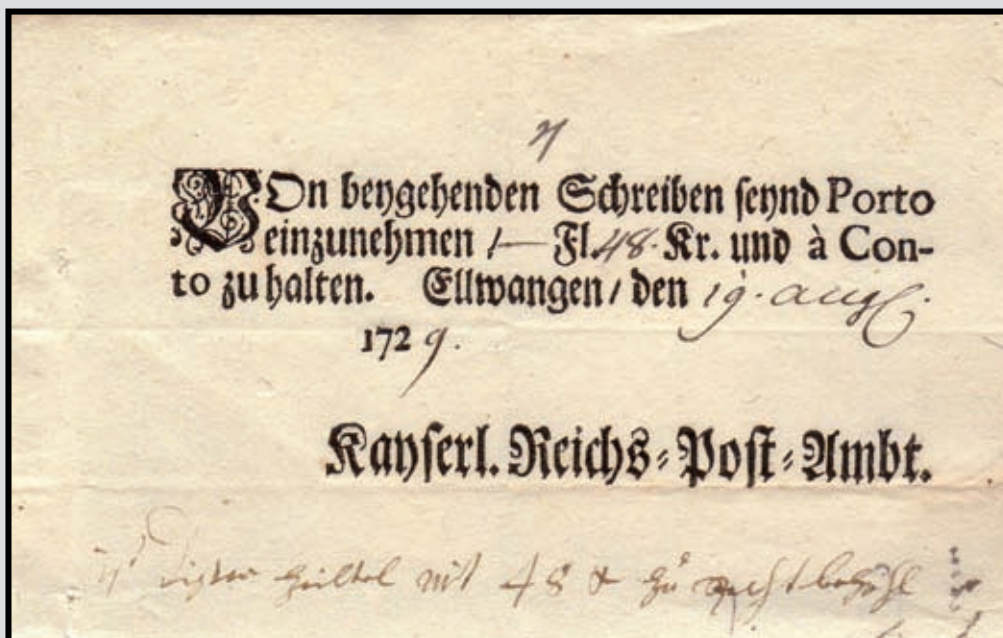 VOn beygehenden Schreiben seynd Porto
einzunehmen 1 — Fl. 48. Kr. und à Con-
to zu halten. Ellwangen / den 19. aug
1729.
Kayserl. Reichs-Post-Ambt.
mit 48 x zu